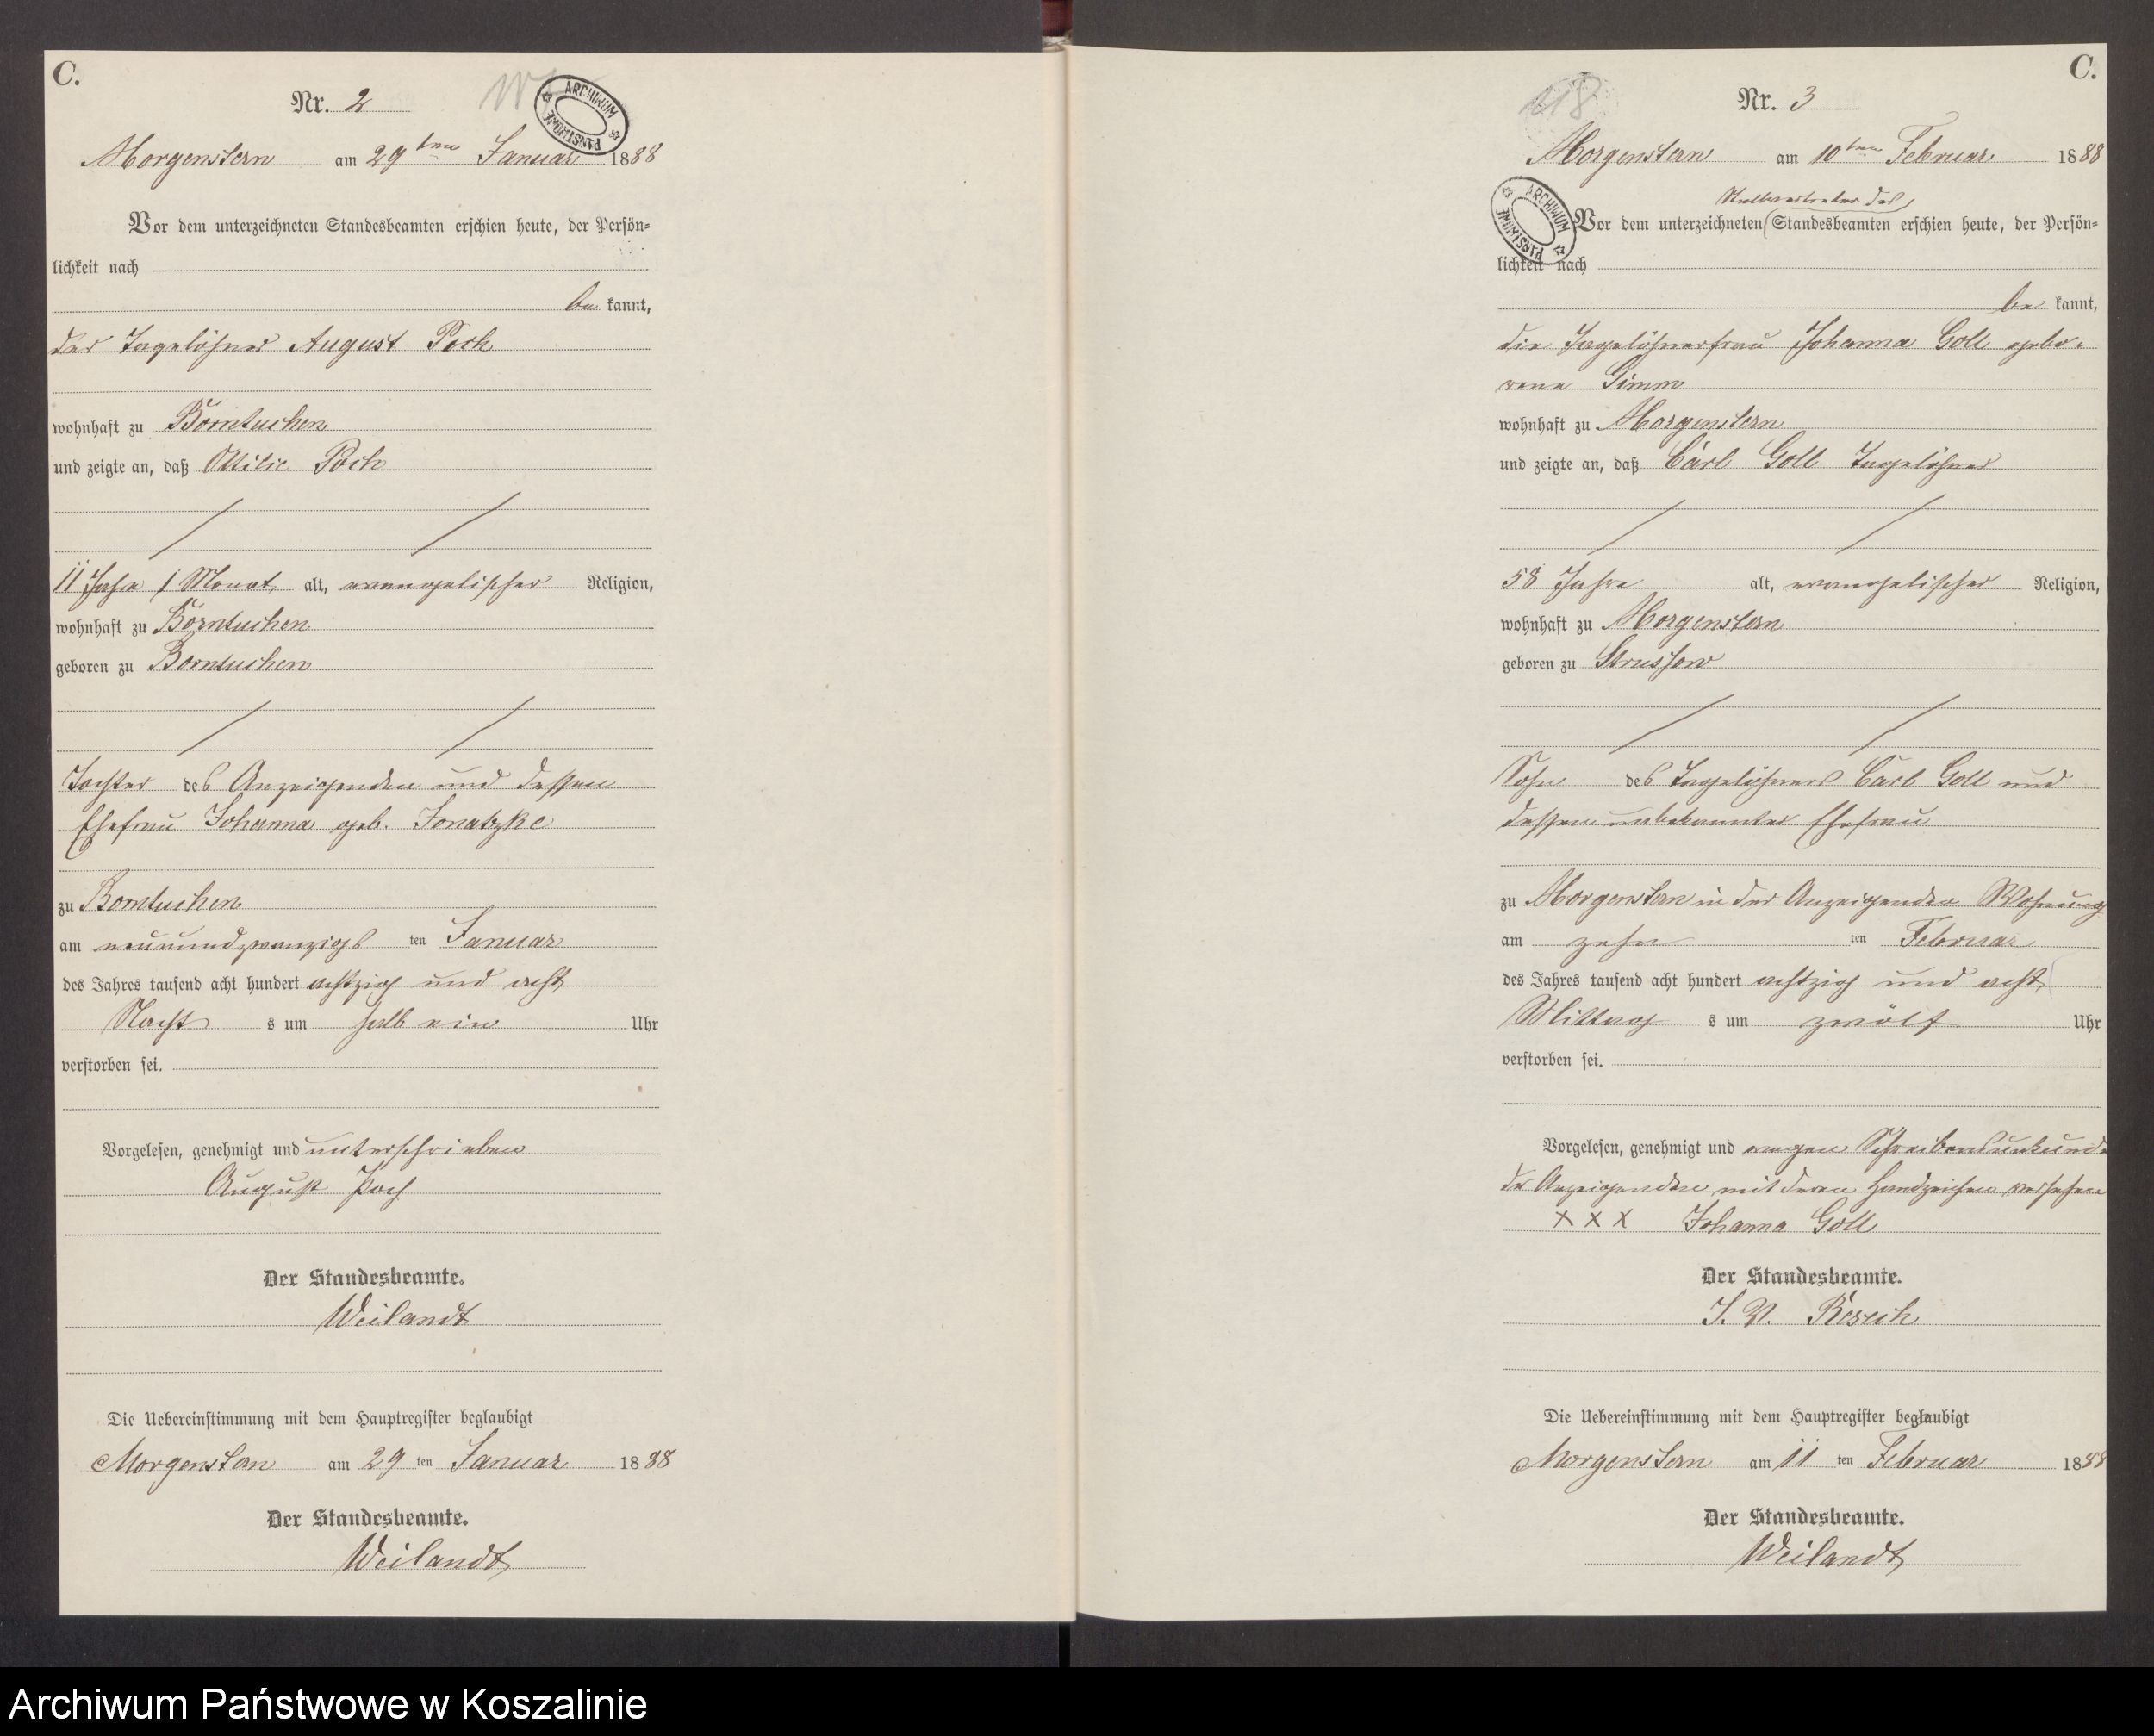 C.
Nr. 2
ARCHIWUM PAŃSTWOWE
Morgenstern am 29ten Januar 1888
Vor dem unterzeichneten Standesbeamten erschien heute, der Persön-
lichkeit nach
be kannt,
der Tagelöhner August Poch
wohnhaft zu Borntuchen
und zeigte an, daß Ottilie Poch
11 Jahr 1 Monat alt, evangelischer Religion,
wohnhaft zu Borntuchen
geboren zu Borntuchen
Tochter des Anzeigenden und dessen
Ehefrau Johanna geb. Jonatzke
zu Borntuchen
am neunundzwanzigs ten Januar
des Jahres tausend acht hundert achtzig und acht
Nacht s um halb ein Uhr
verstorben sei.
Vorgelesen, genehmigt und unterschrieben
August Poch
Der Standesbeamte.
Weilandt
Die Uebereinstimmung mit dem Hauptregister beglaubigt
Morgenstern am 29 ten Januar 1888
Der Standesbeamte.
Weilandt
C.
218
Nr. 3
Morgenstern am 10ten Februar 1888
ARCHIWUM PAŃSTWOWE
Stellvertreter des
Vor dem unterzeichneten Standesbeamten erschien heute, der Persön-
lichkeit nach
be kannt,
die Tagelöhnerfrau Johanna Goll gebo-
rene Gimm
wohnhaft zu Morgenstern
und zeigte an, daß Carl Goll Tagelöhner
58 Jahre alt, evangelischer Religion,
wohnhaft zu Morgenstern
geboren zu Strussow
Sohn des Tagelöhners Carl Goll und
dessen unbekannter Ehefrau
zu Morgenstern in der Anzeigenden Wohnung
am zehn ten Februar
des Jahres tausend acht hundert achtzig und acht
Mittag s um zwölf Uhr
verstorben sei.
Vorgelesen, genehmigt und wegen Schreibensunkunde
der Anzeigenden mit deren Handzeichen versehen
X X X Johanna Goll
Der Standesbeamte.
J. V.
Die Uebereinstimmung mit dem Hauptregister beglaubigt
Morgenstern am 11 ten Februar 1888
Der Standesbeamte.
Weilandt
Archiwum Państwowe w Koszalinie